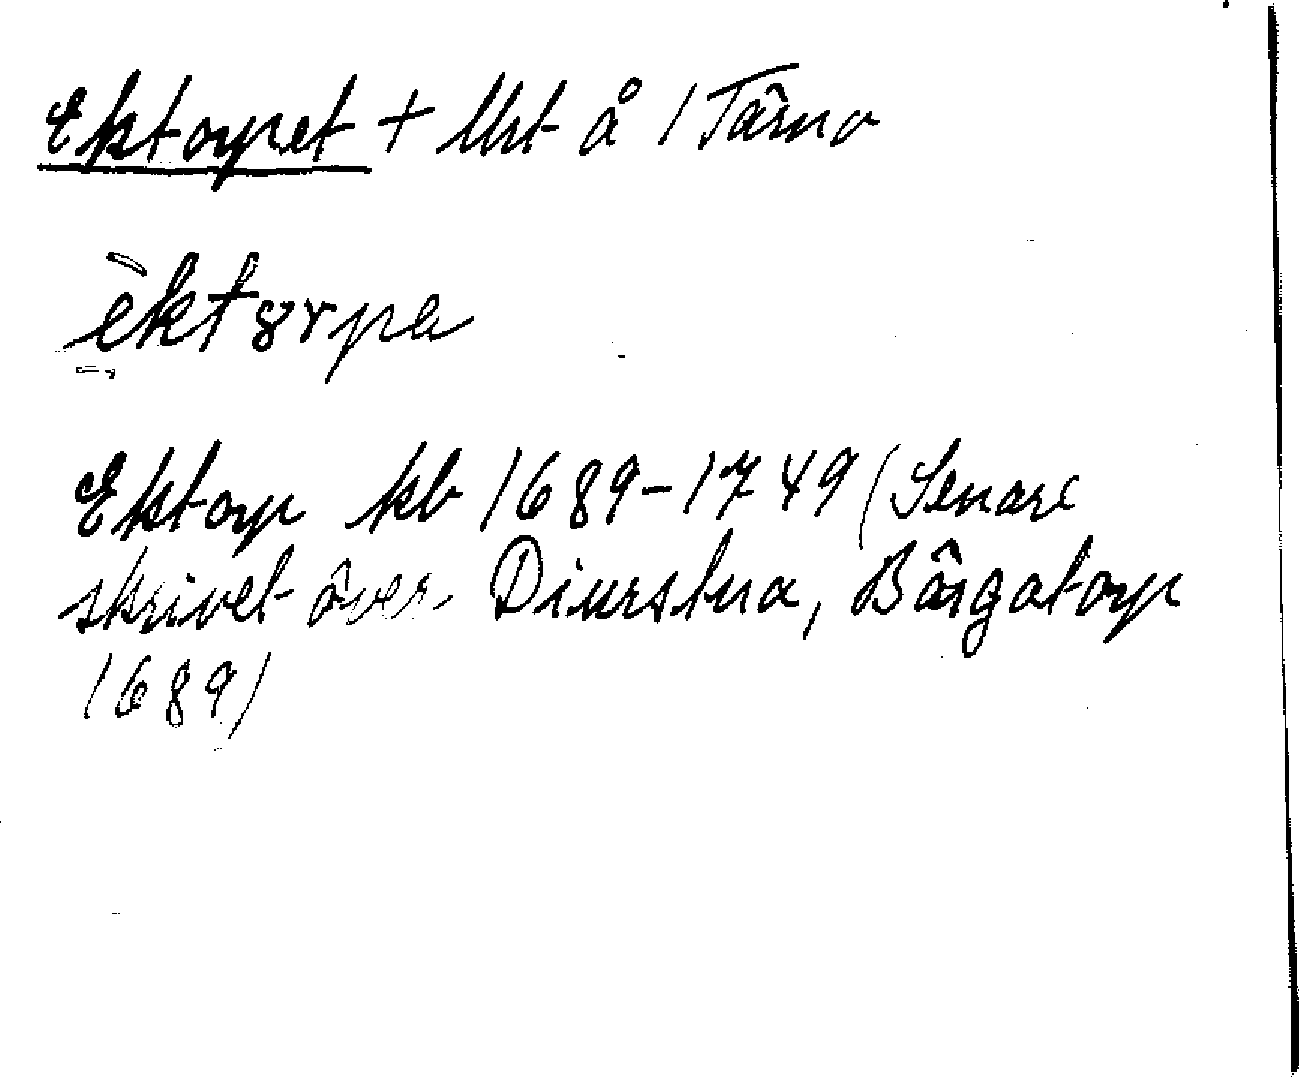 Ektorpet + Urt å 1 Tärna
èktørpa
Ektorp kb 1689-1749 (Senare
skrivet över Diurstua, Bärgatorp
1689)